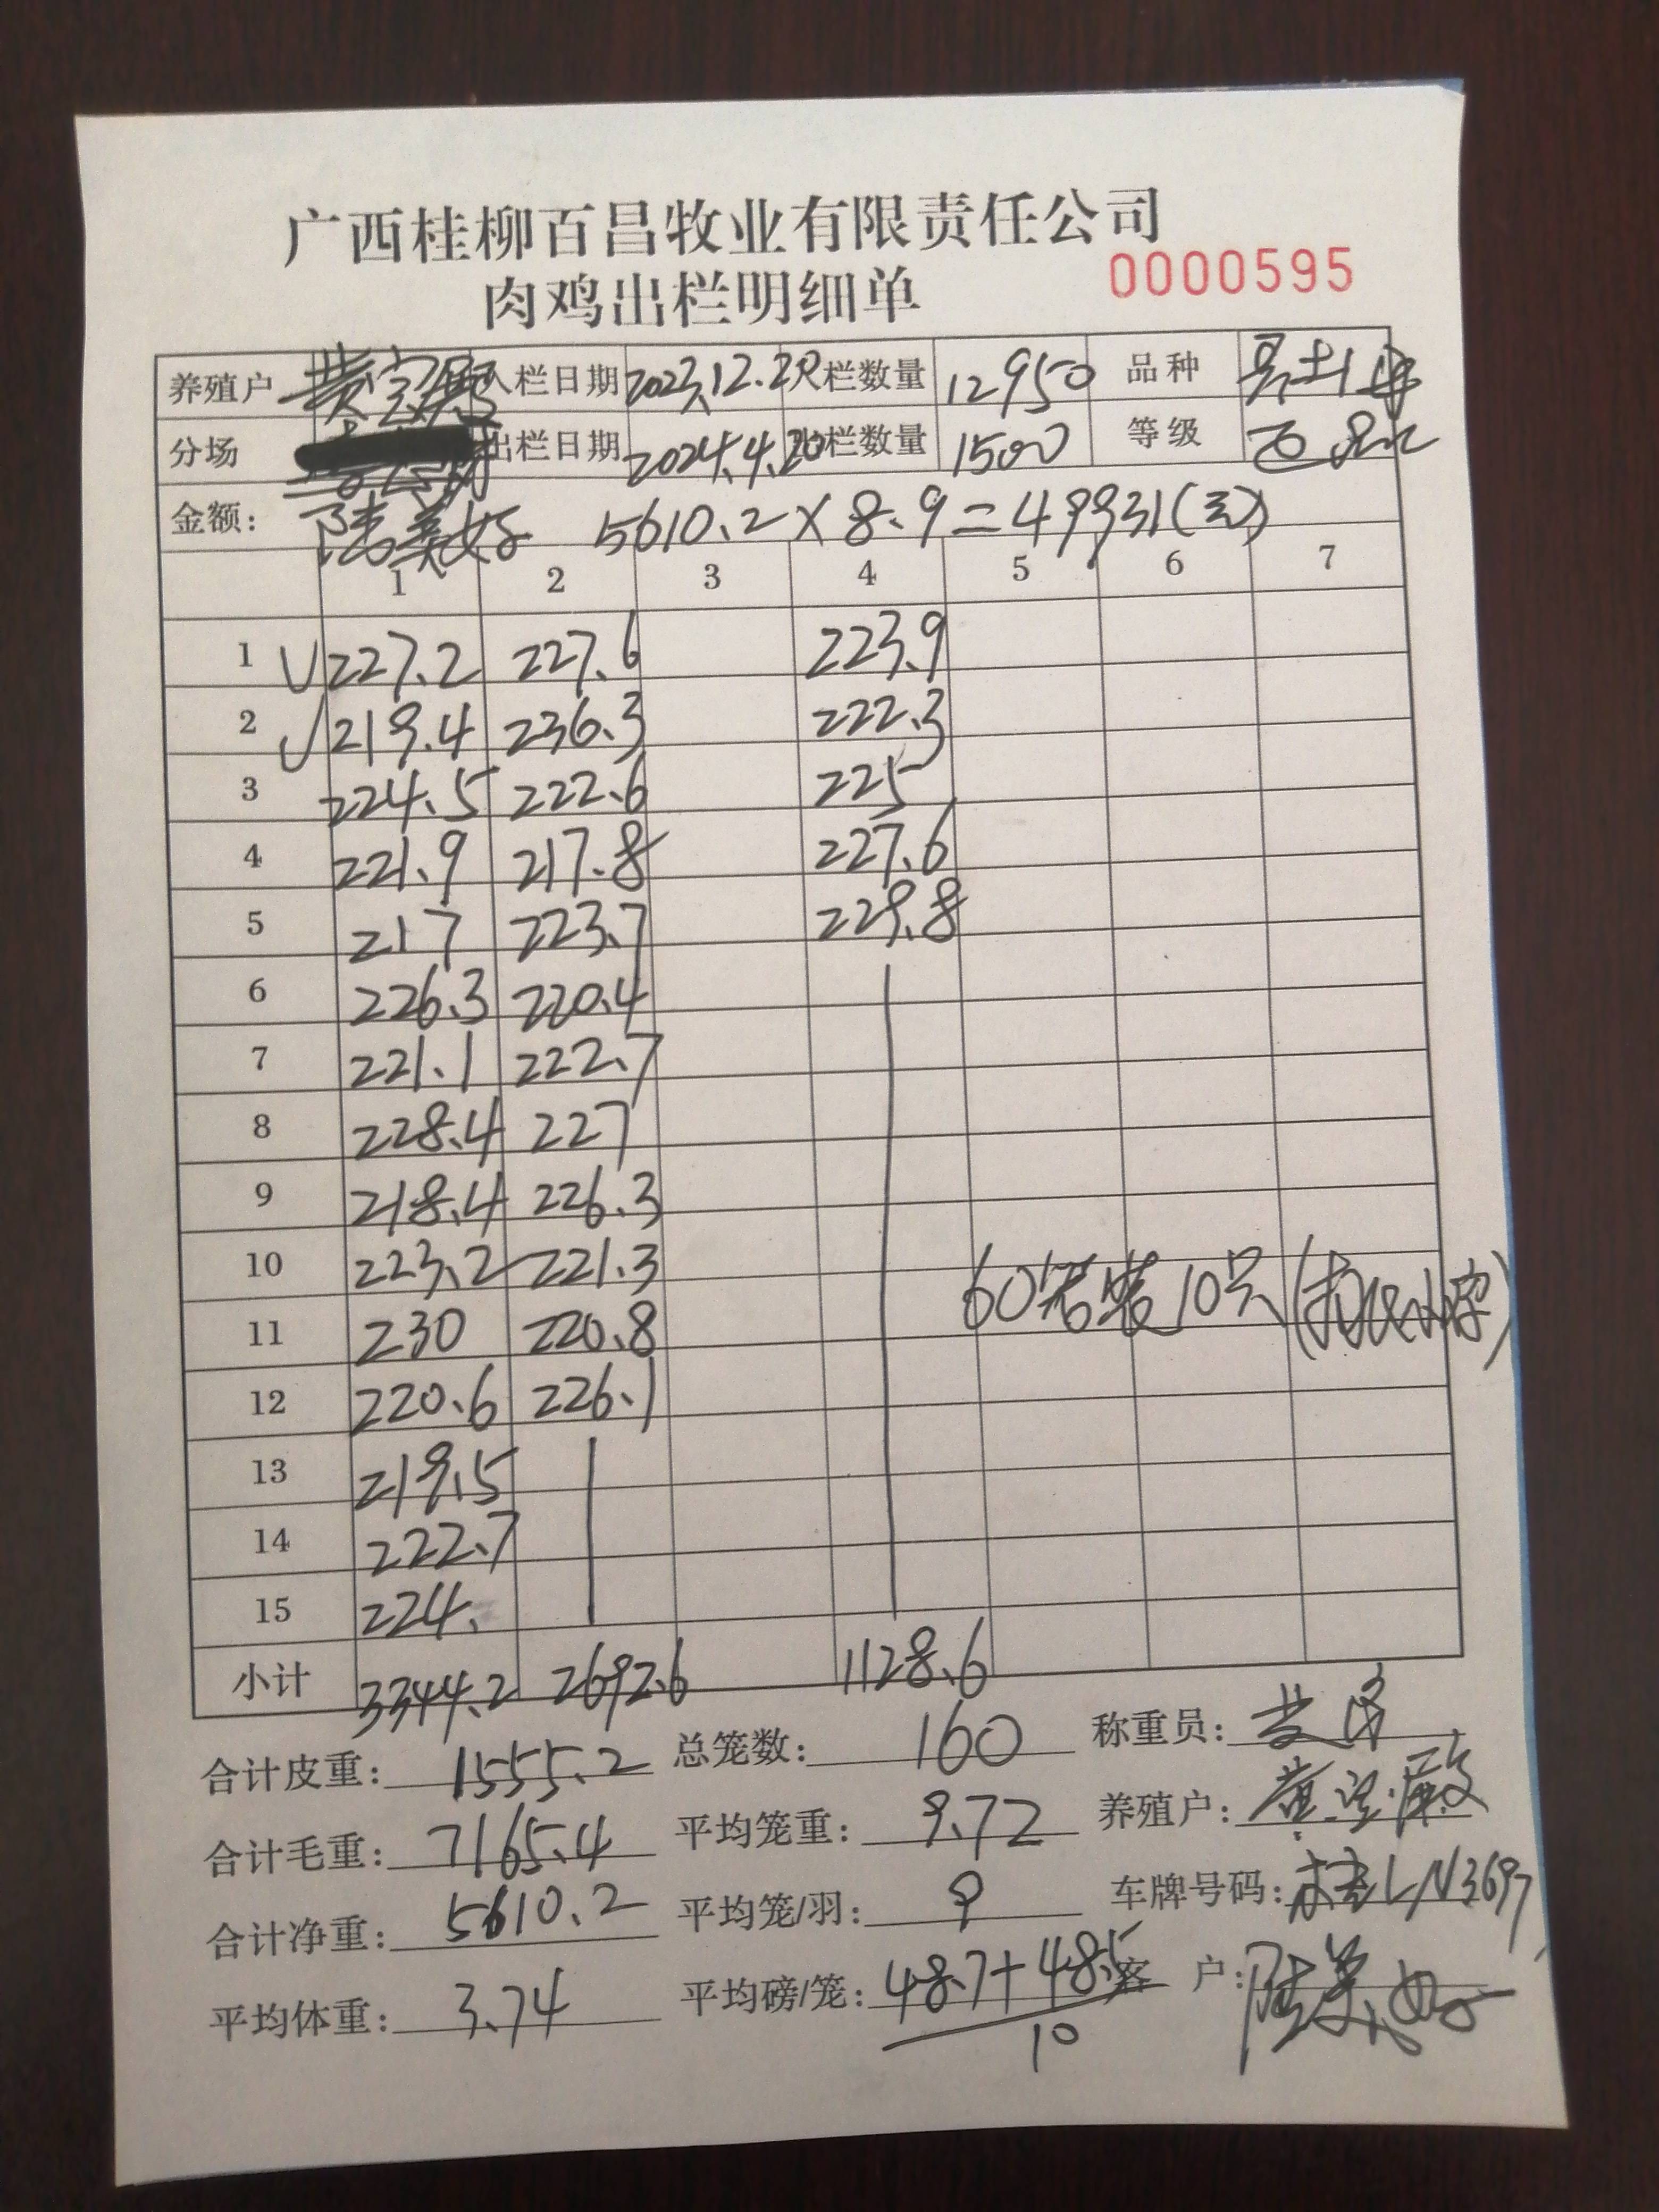 广西桂柳百昌牧业有限责任公司
肉鸡出栏明细单 0000595
养殖户 入栏日期 2023.12.2 入栏数量 12950 品种
分场 出栏日期 2024.4.20 出栏数量 1500 等级
金额: 陆美好 5610.2×8.9=49931(元)
1 2 3 4 5 6 7
1 √227.2 227.6 223.9
2 √219.4 236.3 222.3
3 224.5 222.6 225
4 221.9 217.8 227.6
5 217 223.7 229.8
6 226.3 220.4
7 221.1 222.7
8 228.4 227
9 218.4 226.3
10 223.2 221.3
11 230 220.8 60笼装10只
12 220.6 226.1
13 219.5
14 222.7
15 224.
小计 3344.2 2692.6 1128.6
合计皮重: 1555.2 总笼数: 160 称重员:
合计毛重: 7165.4 平均笼重: 9.72 养殖户:
合计净重: 5610.2 平均笼/羽: 9 车牌号码: 桂LN3697
平均体重: 3.74 平均磅/笼: 48.7+48.5 客户: 陆美好
10